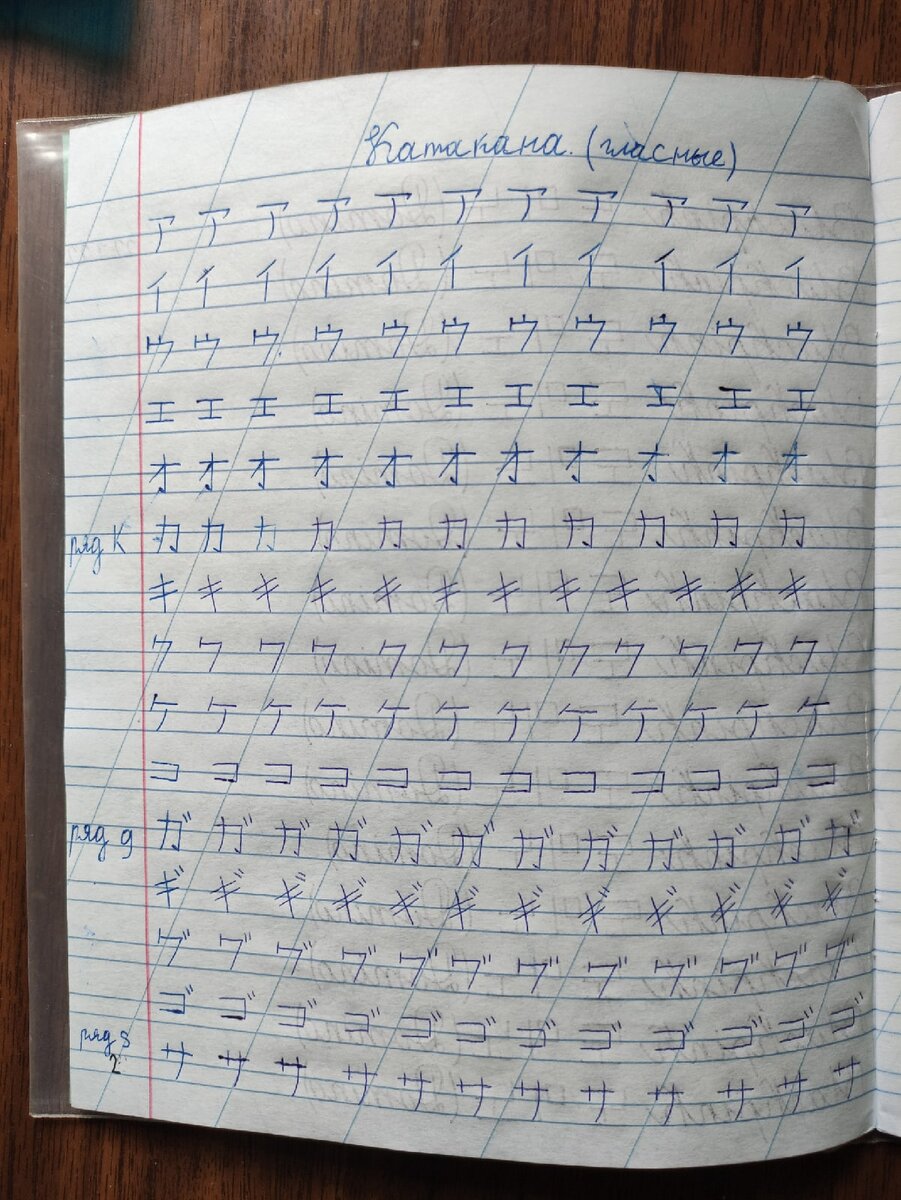 Катакана. (гласные)
ア ア ア ア ア ア ア ア ア ア ア
イ イ イ イ イ イ イ イ イ イ イ
ウ ウ ウ ウ ウ ウ ウ ウ ウ ウ ウ
エ エ エ エ エ エ エ エ エ エ エ
オ オ オ オ オ オ オ オ オ オ オ
ряд K カ カ カ カ カ カ カ カ カ カ カ
キ キ キ キ キ キ キ キ キ キ キ キ
ク ク ク ク ク ク ク ク ク ク ク ク
ケ ケ ケ ケ ケ ケ ケ ケ ケ ケ ケ ケ
コ コ コ コ コ コ コ コ コ コ コ コ
ряд g ガ ガ ガ ガ ガ ガ ガ ガ ガ ガ ガ ガ
ギ ギ ギ ギ ギ ギ ギ ギ ギ ギ ギ ギ
グ グ グ グ グ グ グ グ グ グ グ グ
ゴ ゴ ゴ ゴ ゴ ゴ ゴ ゴ ゴ ゴ ゴ ゴ
ряд s サ サ サ サ サ サ サ サ サ サ サ サ
2